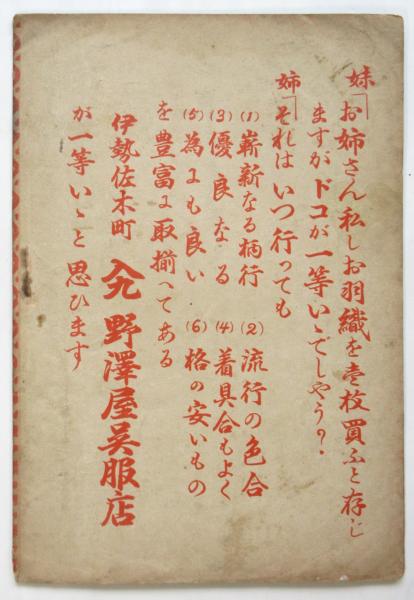 妹「お姉さん私しお羽織を壱枚買ふと存じ
ますがドコが一等いゝでしやう？
姉「それはいつ行つても
(1) 嶄新なる柄行 (2) 流行の色合
(3) 優良なる (4) 着具合もよく
(5) 為にも良い (6) 格の安いもの
を豊富に取揃へてある
伊勢佐木町 野澤屋呉服店
が一等いゝと思ひます